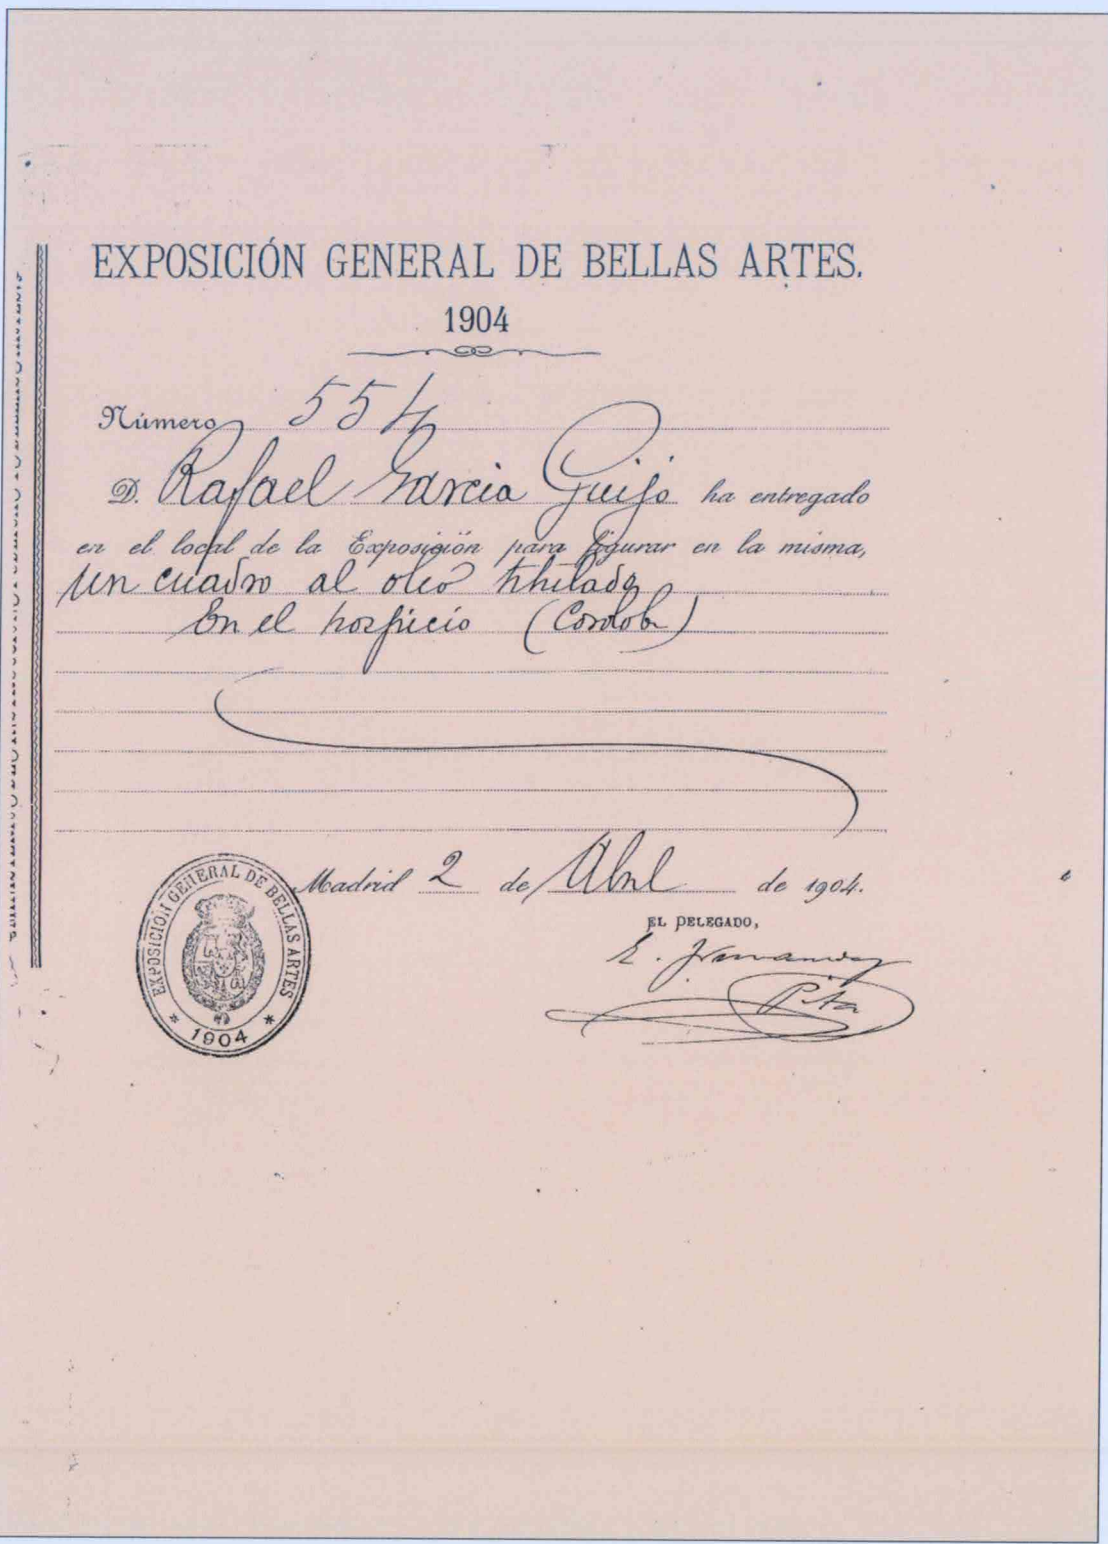 EXPOSICIÓN GENERAL DE BELLAS ARTES.
1904
Número 554
D. Rafael Garcia Guijo ha entregado
en el local de la Exposición para figurar en la misma,
un cuadro al oleo titulado
En el hospicio (Cordoba)
Madrid 2 de Abril de 1904.
EL DELEGADO,
E. Fernandez
Pita
EXPOSICIÓN GENERAL DE BELLAS ARTES
* 1904 *